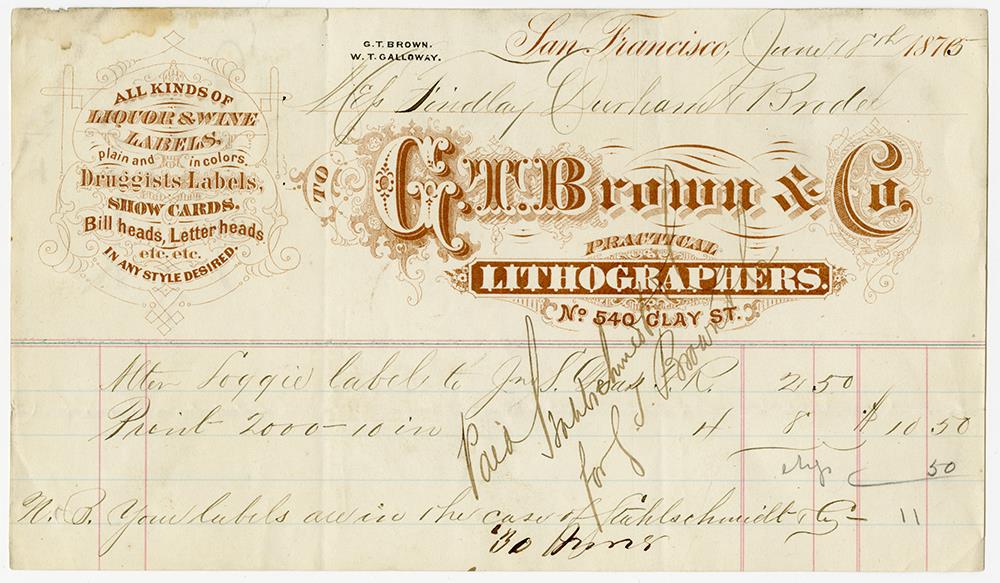 G. T. BROWN.
W. T. GALLOWAY.
San Francisco, June 8th 1875
Mess Findlay Durham & Brodie
ALL KINDS OF
LIQUOR & WINE
LABELS,
plain and in colors,
Druggists Labels,
SHOW CARDS.
Bill heads, Letter heads
etc. etc.
IN ANY STYLE DESIRED.
TO
G. T. Brown & Co.
PRACTICAL
LITHOGRAPHERS.
No 540 CLAY ST.
label to 2 50
Print 2000 - 10 in 4 8 $ 10 50
50
Paid Stahlschmidt
for G. T. Brown
N. B. Your labels are in the case of Stahlschmidt & Co - 11